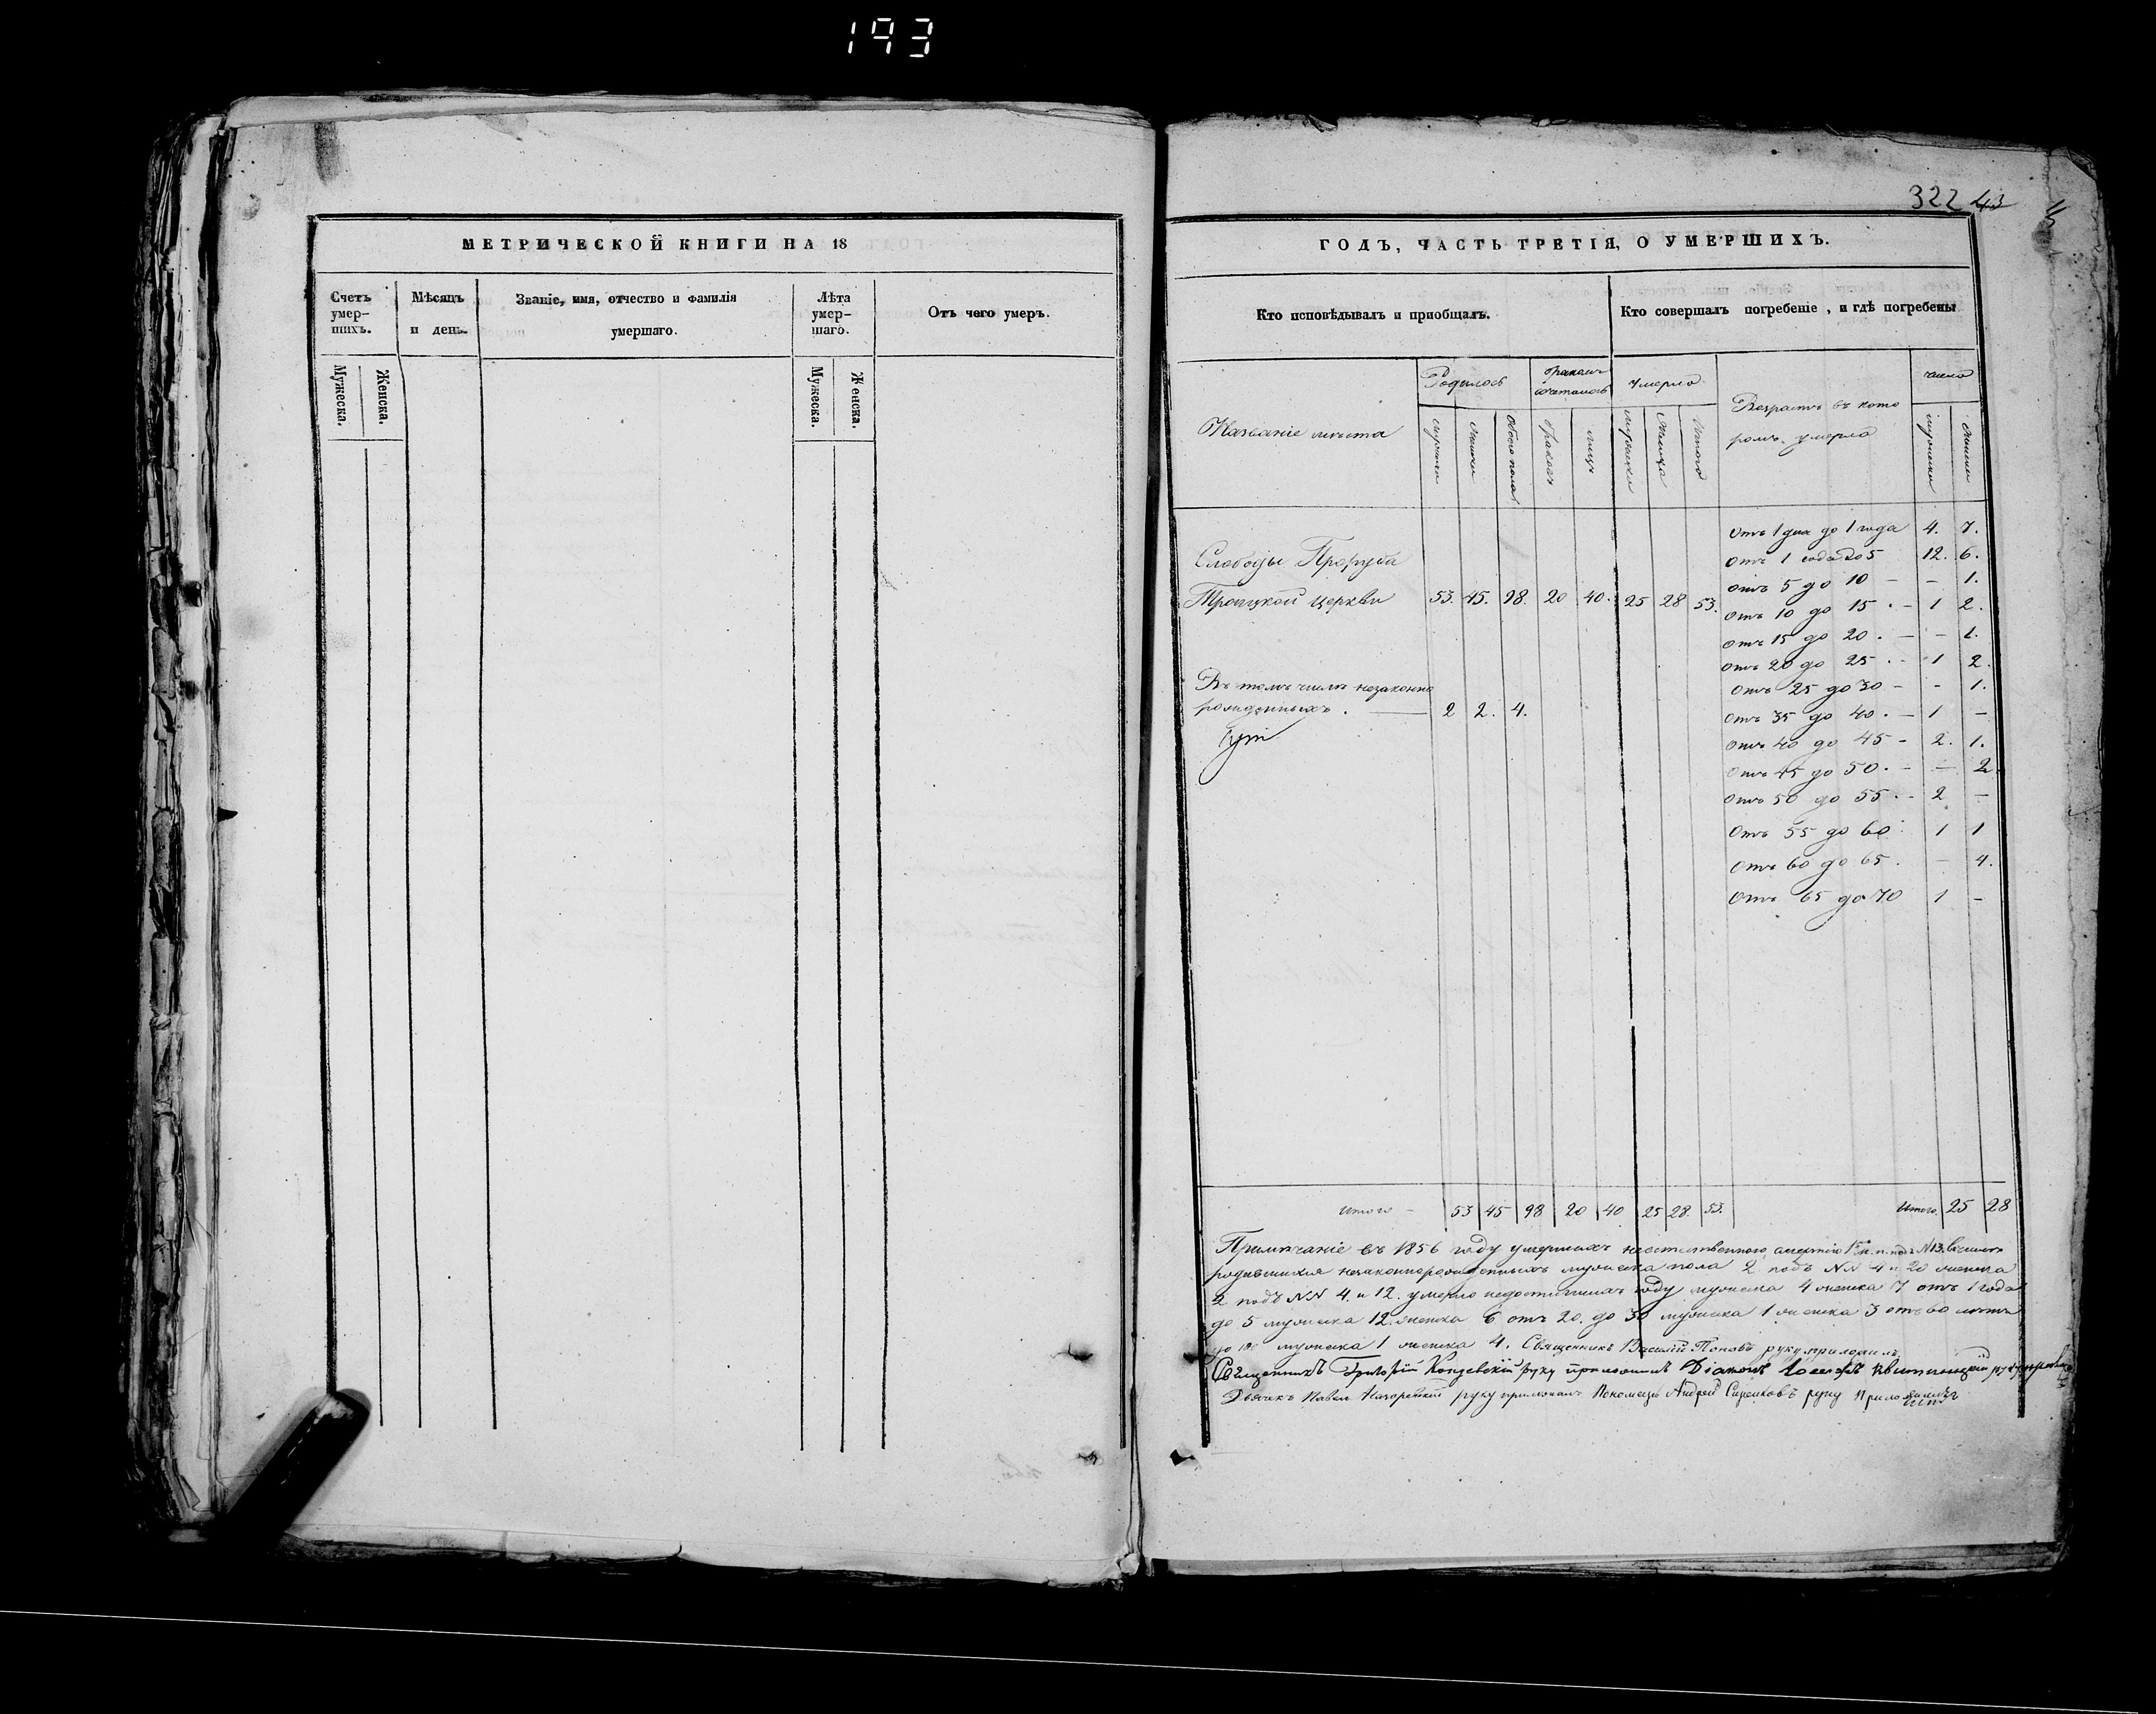 193
322 43
МЕТРИЧЕСКОЙ КНИГИ НА 18
Счетъ умер-шихъ.
Мужеска.
Женска.
Мѣсяцъ и день.
Званіе, имя, отчество и фамилія умершаго.
Лѣта умер-шаго.
Мужеска.
Женска.
Отъ чего умеръ.
ГОДЪ, ЧАСТЬ ТРЕТІЯ, О УМЕРШИХЪ.
Кто исповѣдывалъ и пріобщалъ.
Кто совершалъ погребеніе, и гдѣ погребены
Названіе мѣста
Родилось
мужеска
женска
Обоего пола
бракомъ сочеталось
браковъ
лицъ
умерло
мужеска
Женска
Итого
Возрастъ въ кото
ромъ умерло
число
мужеска
Женска
Слободы
Троицкой церкви 53. 45. 98. 20 40. 25 28 53.
Въ томъ числѣ незаконно
рожденныхъ. — 2 2. 4.
Отъ 1 дня до 1 года 4. 7.
Отъ 1 года до 5 12. 6.
Отъ 5 до 10 – – 1.
Отъ 10 до 15 . – 1 2.
Отъ 15 до 20 . – – 1.
Отъ 20 до 25 . – 1 2.
Отъ 25 до 30 – – 1.
Отъ 35 до 40 . – 1 –
Отъ 40 до 45 – 2. 1.
Отъ 45 до 50 . – – 2
Отъ 50 до 55 . – 2 –
Отъ 55 до 60 . 1 1
Отъ 60 до 65 . – 4.
Отъ 65 до 70 1 –
Итого – 53 45 98 20 40 25 28. 53. Итого. 25 28
Примѣчаніе въ 1856 году умершихъ неестественною смертію
родившихся незаконнорожденныхъ мужеска пола 2 подъ NN 4 и 20 женска
2 подъ NN 4. и 12. умерло недостигшихъ году мужеска 4 женска 7 отъ 1 года
до 5 мужеска 12. женска 6 отъ 20. до 30 мужеска 1 женска 3 отъ 60 лѣтъ
до 100 мужеска 1 женска 4. Священникъ Василій Поповъ руку приложилъ
Священникъ Григорій руку приложилъ Діаконъ Іосифъ
Дьячекъ Павелъ руку приложилъ Пономарь Андрей руку приложилъ